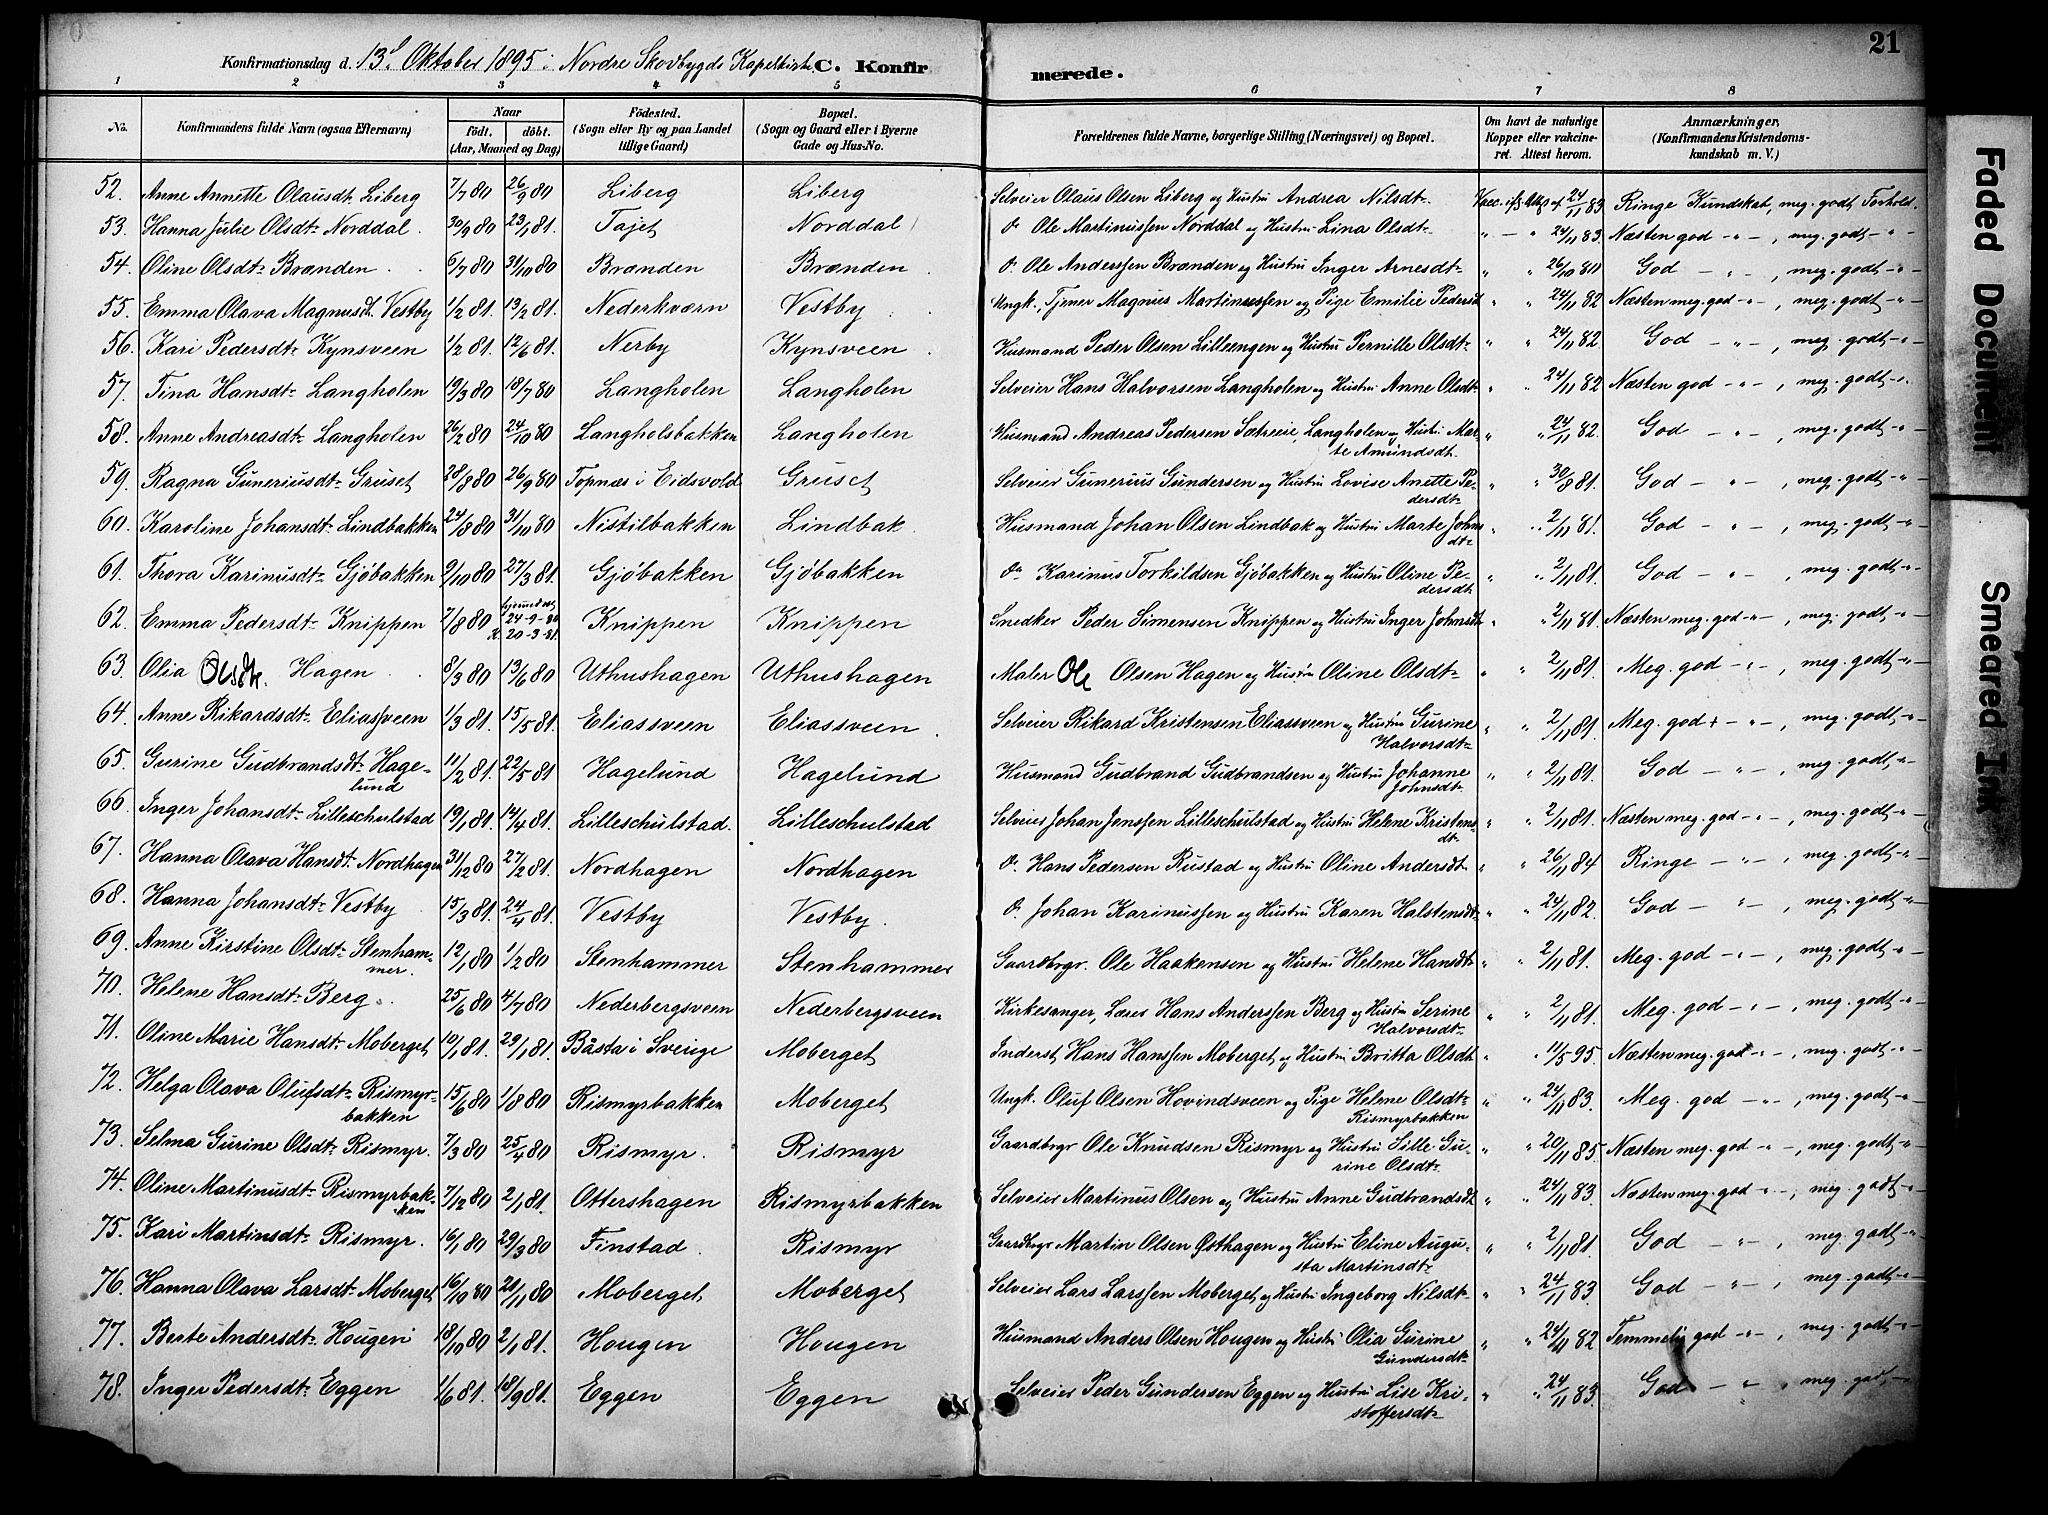 21
Konfirmationsdag d. 13de Oktober 1895 i Nordre Skovbygds Kapelkirke C. Konfirmerede.
1 2 3 4 5 6 7 8
No. Konfirmandens fulde Navn (ogsaa Efternavn) Naar födt. döbt. (Aar, Maaned og Dag) Födested. (Sogn eller By og paa Landet tillige Gaard) Bopæl. (Sogn og Gaard eller i Byerne Gade og Hus-No. Forældrenes fulde Navne, borgerlige Stilling (Næringsvei) og Bopæl. Om havt de naturlige Kopper eller vakcineret. Attest herom. Anmærkninger, (Konfirmandens Kristendomskundskab m. V.)
52. Anne Annette Olausdt. Liberg 7/7 80 26/9 80 Liberg Liberg Selveier Olaus Olsen Liberg og Hustru Andrea Nilsdt. Vacc. 24/11 83 Ringe Kundskab, meg. godt Forhold.
53. Hanna Julie Olsdt. Norddal 30/9 80 23/1 81. Tajet Norddal Do Ole Martinussen Norddal og Hustru Lina Olsdt. " - " 24/11 83. Næsten god - " - , meg. godt - " -
54. Oline Olsdt. Brænden 6/7 80 31/10 80 Brænden Brænden Do. Ole Anderssen Brænden og Hustru Inger Arnesdt. " " 26/10 80 God - " - , meg. godt - " -
55. Emma Olava Magnusdt. Vestby 1/2 81. 13/2 81. Nederkværn Vestby Ungk., Tjener Magnus Martinussen og Pige Emilie Pedersdt " " 24/11 82 Næsten meg. god - " - , meg. godt - " -
56. Kari Pedersdt. Kynsveen 1/2 81. 12/6 81. Nerby Kynsveen Husmand Peder Olsen Lilleengen og Hustru Pernille Olsdt. " " 24/11 82. God - " - , meg. godt - " -
57. Tina Hansdt. Langholen 19/3 80 18/7 80 Langholen Langholen Selveier Hans Halvorsen Langholen og Hustru Anne Olsdt. " " 24/11 82. Næsten god - " - , meg. godt - " -
58. Anne Andreasdt. Langholen 26/2 80 24/10 80 Langholsbakken Langholen Husmand Andreas Pedersen Sætreeie, Langholen og Hustru Marte Amundsdt. " " 24/11 82. God - " - , meg. godt - " -
59. Ragna Guneriusdt. Gruset 28/8 80 26/9 80 Topnæs i Eidsvold Gruset Selveier Gunerius Gundersen og Hustru Lovise Anette Pedersdt. " " 30/8 81. God - " - , meg. godt - " -
60. Karoline Johansdt. Lindbakken 24/8 80 31/10 80 Nistilbakken Lindbak Husmand Johan Olsen Lindbak og Hustru Marte Johnsdt. " " 2/11 81. God - " - , meg. godt - " -
61. Thora Karinusdt. Gjöbakken 9/10 80 27/3 81. Gjöbakken Gjöbakken Do Karinus Torkildsen Gjöbakken og Hustru Oline Pedersdt " " 2/11 81. God - " - , meg. godt - " -
62. Emma Pedersdt. Knippen 7/8 80 hjemmedøbt 24-9-80 k. 20-3-81. Knippen Knippen Snedker Peder Simensen Knippen og Hustru Inger Johnsdt. " " 2/11 81. Næsten meg. god - " - , meg. godt - " -
63. Olia Olsdtr. Hagen 8/3 80 13/6 80 Uthushagen Uthushagen Maler Ole Olsen Hagen og Hustru Oline Olsdt. " " 2/11 81. Meg. god - " - , meg. godt - " -
64. Anne Rikardsdt. Eliassveen 1/3 81. 15/5 81. Eliassveen Eliassveen Selveier Rikard Kristensen Eliassveen og Hustru Gurine Halvorsdt. " " 2/11 81. Meg. god + - " - , meg. godt - " -
65. Gurine Gudbrandsdt. Hagelund 11/2 81. 22/5 81 Hagelund Hagelund Husmand Gudbrand Gudbrandsen og Hustru Johanne Johnsdt. " " 2/11 81. God - " - , meg. godt - " -
66. Inger Johansdt. Lilleschulstad 19/1 81. 14/4 81. Lilleschulstad. Lilleschulstad Selveier Johan Jenssen Lilleschulstad og Hustru Helene Kristensdt. " " 2/11 81. Næsten meg. god - " - , meg. godt - " -
67. Hanna Olava Hansdt. Nordhagen 31/12 80 27/2 81. Nordhagen Nordhagen Do. Hans Pedersen Rustad og Hustru Oline Andersdt. " " 26/11 84 Ringe - " - , meg. godt - " -
68. Hanna Johansdt. Vestby 15/3 81. 24/4 81. Vestby Vestby. Do. Johan Karinussen og Hustru Karen Halstensdt. " " 24/11 82. God - " - , meg. godt - " -
69. Anne Kirstine Olsdt. Stenhammer. 12/1 80 1/2 80 Stenhammer Stenhammer Gaardbrgr. Ole Haakensen og Hustru Helene Hansdt. " " 2/11 81. Meg. god - " - , meg. godt - " -
70. Helene Hansdt. Berg. 25/6 80 4/7 80 Nederbergsveen Nederbergsveen Kirkesanger, Lærer Hans Anderssen Berg og Hustru Serine Halvorsdt. " " 2/11 81. Meg. god - " - , meg. godt - " -
71. Oline Marie Hansdt. Moberget 19/1 81. 29/1 81. Båsta i Sverige Moberget Inderst Hans Hanssen Moberget og Hustru Britta Olsdt. " " 11/5 95. Næsten meg. god - " - , meg. godt - " -
72. Helga Olava Olufsdt. Rismyrbakken 15/6 80 1/8 80 Rismyrbakken Moberget Ungk. Oluf Olsen Hovindsveen og Pige Helene Olsdt. Rismyrbakken " " 24/11 83. Meg. god - " - , meg. godt - " -
73. Selma Gurine Olsdt. Rismyr. 7/3 80 25/4 80 Rismyr. Rismyr Gaardbrgr Ole Knudsen Rismyr og Hustru Sille Gurine Olsdt. " " 20/11 85. Næsten meg. god - " - , meg. godt - " -
74. Oline Martinusdt. Rismyrbakken 7/12 80 2/1 81. Ottershagen Rismyrbakken Selveier Martinus Olsen og Hustru Anne Gudbrandsdt. " " 24/11 83. Næsten meg. god - " - , meg. godt - " -
75. Kari Martinsdt. Rismyr. 16/1 80 29/3 80 Finstad. Rismyr Gaardbrgr Martin Olsen Østhagen og Hustru Eline Augusta Martinsdt. " " 2/11 81. God - " - , meg. godt - " -
76. Hanna Olava Larsdt. Moberget 16/10 80 28/11 80 Moberget Moberget Selveier Lars Larssen Moberget, og Hustru Ingeborg Nilsdt. " " 24/11 83. God - " - , meg. godt - " -
77. Berte Andersdt. Hougen 18/10 80 2/1 81. Hougen Hougen Husmand Anders Olsen Hougen og Hustru Olia Gurine Gundersdt. " " 24/11 82 Temmelig god - " - , meg. godt - " -
78. Inger Pedersdt. Eggen 1/6 81. 18/9 81. Eggen Eggen Selveier Peder Gunderssen Eggen og Hustru Lise Kristoffersdt. " " 24/11 83. God - " - , meg. godt - " -
Faded Document
Smeared Ink